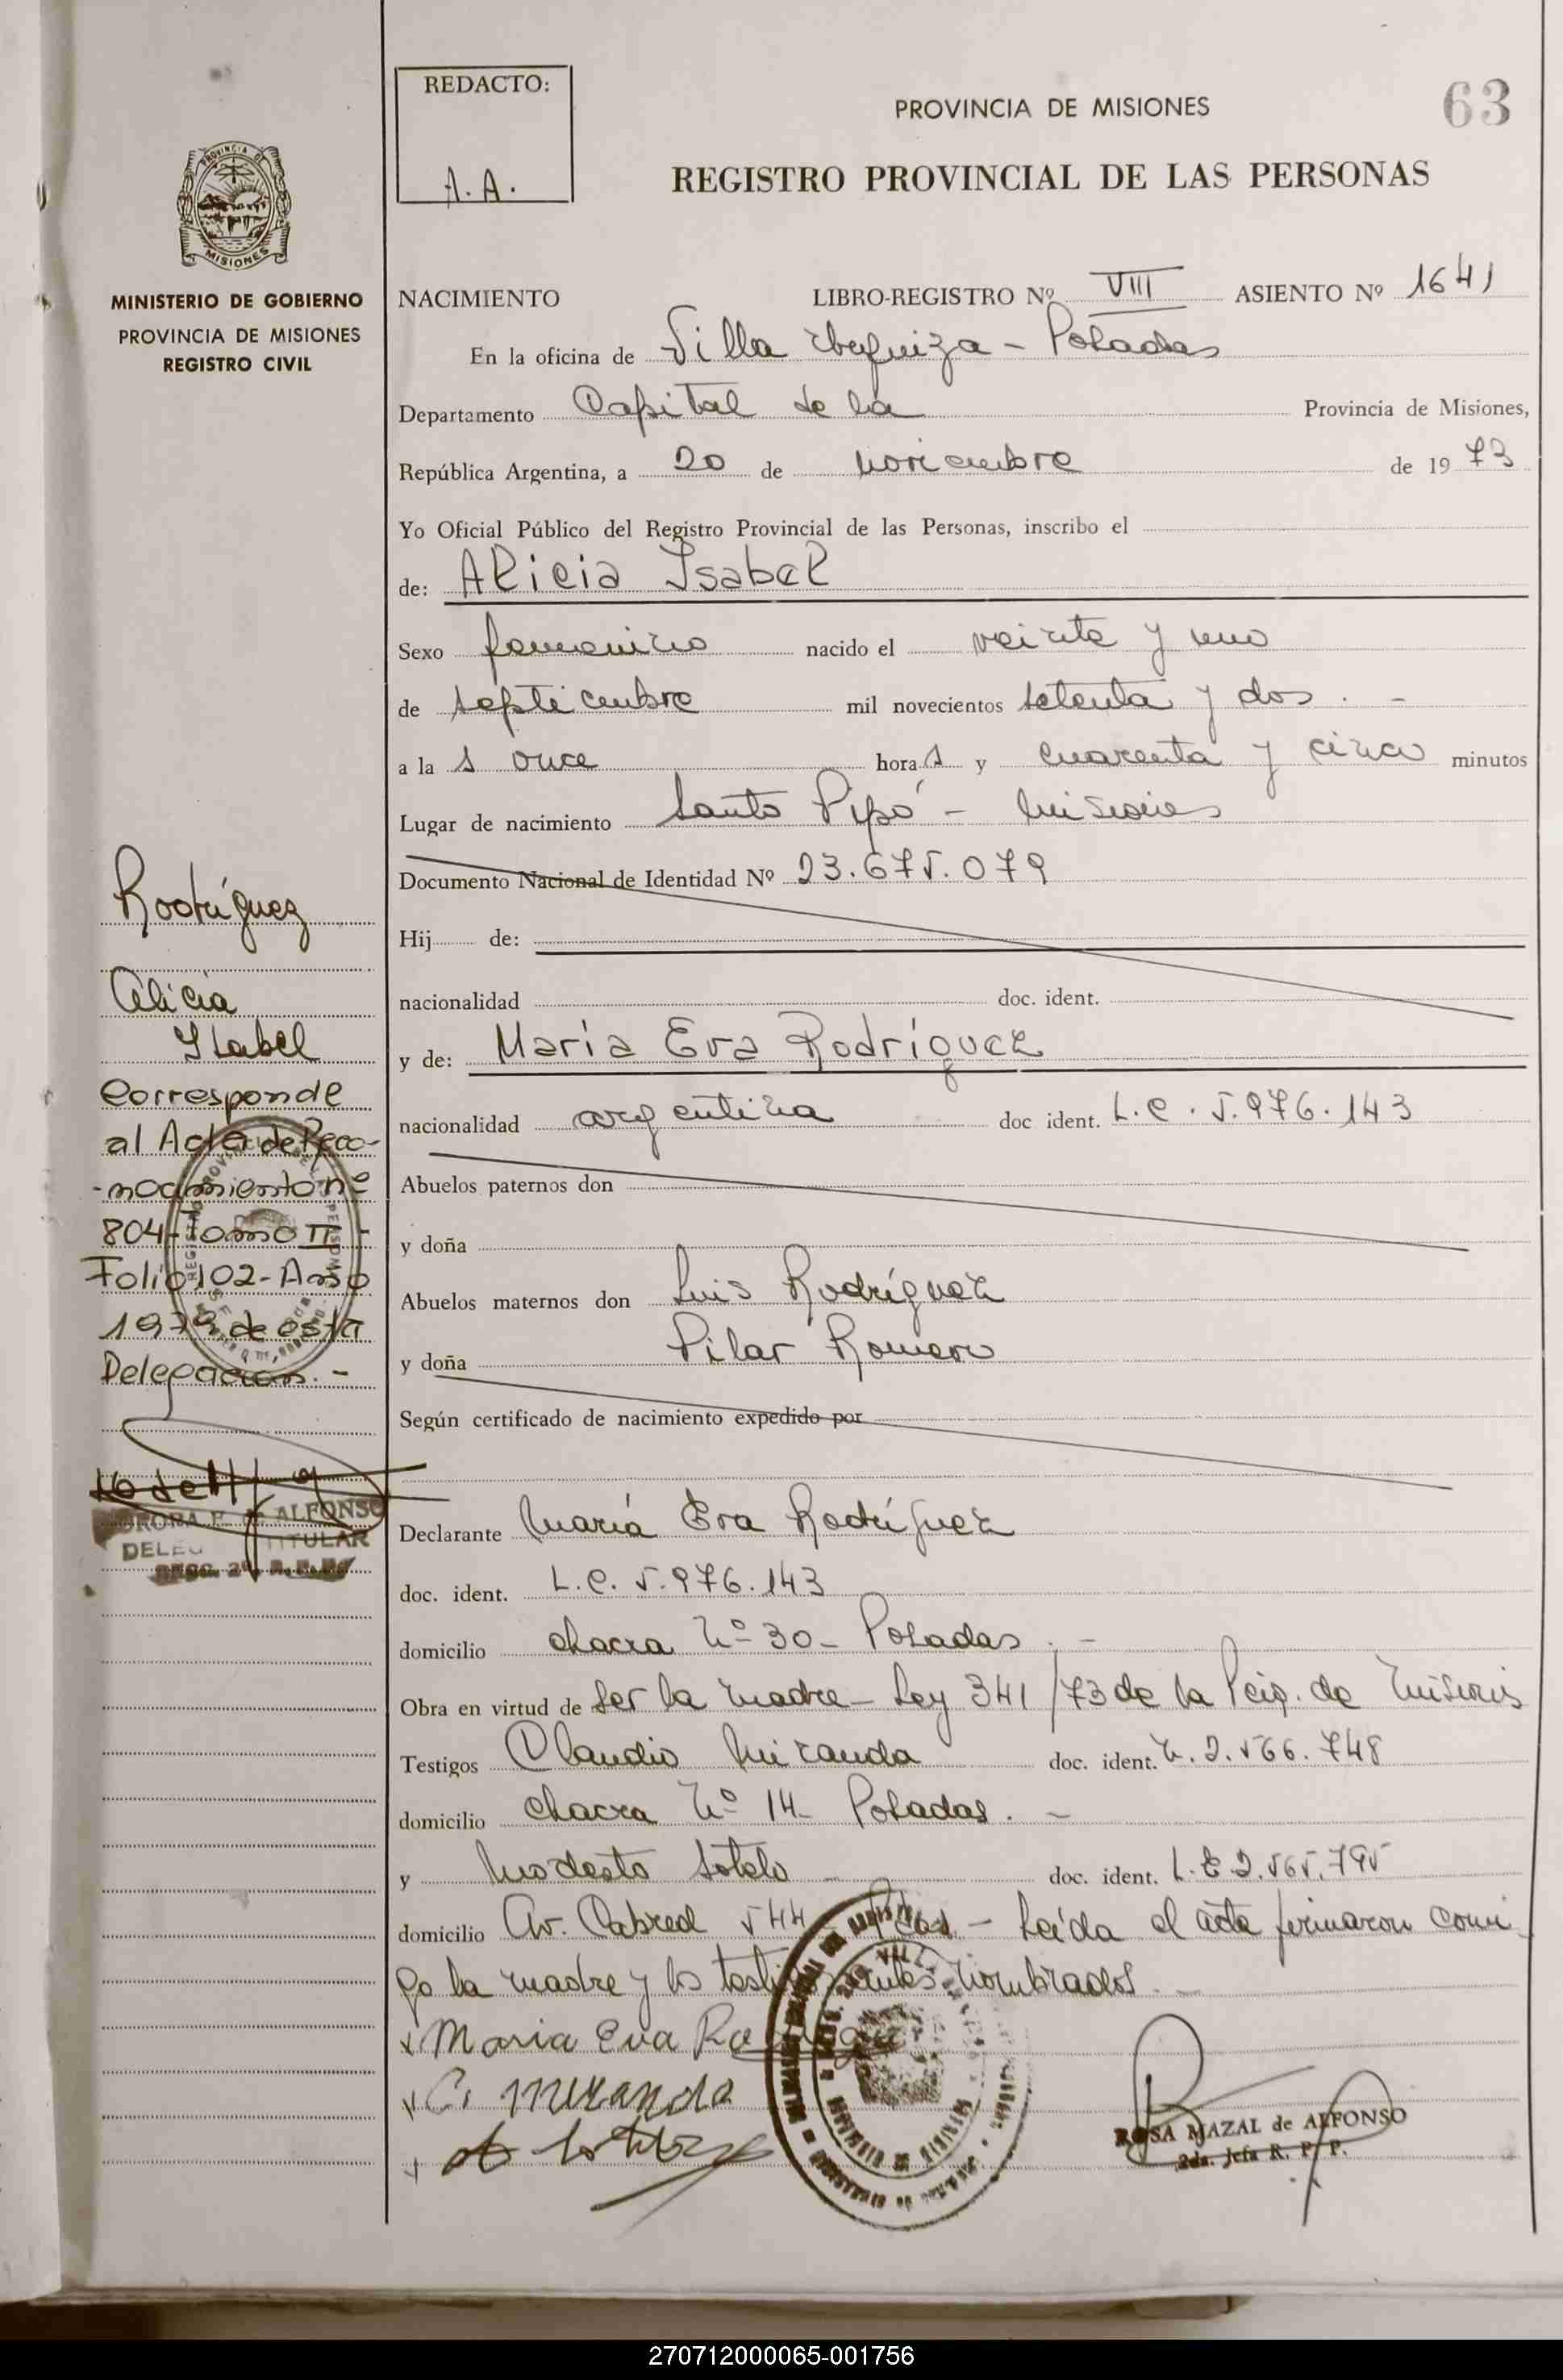 REDACTO:
A.A.
PROVINCIA DE MISIONES
63
REGISTRO PROVINCIAL DE LAS PERSONAS
PROVINCIA DE
MISIONES
MINISTERIO DE GOBIERNO
PROVINCIA DE MISIONES
REGISTRO CIVIL
NACIMIENTO LIBRO-REGISTRO Nº VIII ASIENTO Nº 1641
En la oficina de Villa Urquiza - Posadas
Departamento Capital de la Provincia de Misiones,
República Argentina, a 20 de noviembre de 1973
Yo Oficial Público del Registro Provincial de las Personas, inscribo el
de: Alicia Isabel
Sexo femenino nacido el veinte y uno
de septiembre mil novecientos setenta y dos . -
a la s once hora s y cuarenta y cinco minutos
Lugar de nacimiento Santo Pipó - Misiones
Documento Nacional de Identidad Nº 23.675.079
Hij de:
nacionalidad doc. ident.
y de: María Eva Rodríguez
nacionalidad argentina doc ident. L.C. 5.976.143
Abuelos paternos don
y doña
Abuelos maternos don Luis Rodríguez
y doña Pilar Romero
Según certificado de nacimiento expedido por
Declarante María Eva Rodríguez
doc. ident. L.C. 5.976.143
domicilio chacra Nº 30 - Posadas . -
Obra en virtud de ser la madre - Ley 341/73 de la Pcia. de Misiones
Testigos Claudio Miranda doc. ident. 2.566.748
domicilio chacra Nº 14 - Posadas. -
y Modesto Sotelo doc. ident. L.E 2.565.795
domicilio Av. Cabred 544 - Pdas - Leída el acta firmaron conmi
go la madre y los testigos antes nombrados. -
x Maria Eva Rodriguez
x C. Miranda
ROSA MAZAL de ALFONSO
2da. Jefa R. P. P.
Rodríguez
Alicia
Isabel
Corresponde
al Acta de Reco-
-nocimiento nº
804 - Tomo II -
Folio 102 - Año
1979 de esta
Delegación. -
ALFONSO
TITULAR
270712000065-001756